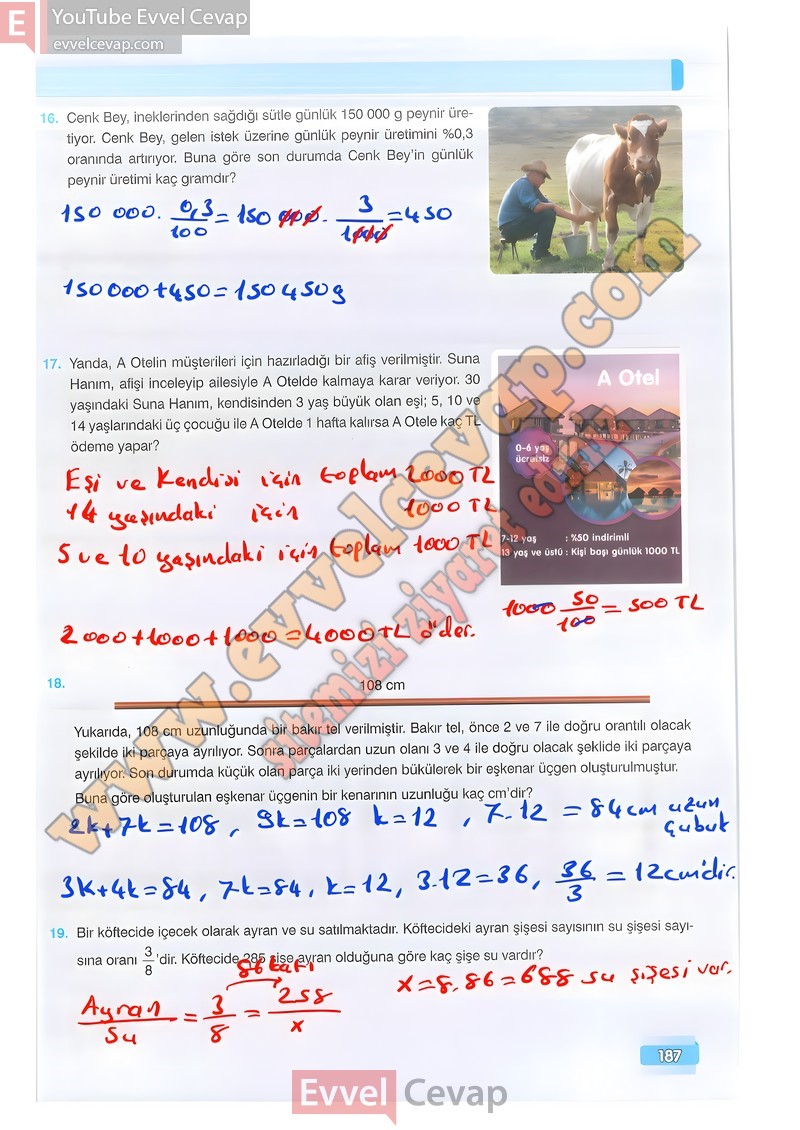 E YouTube Evvel Cevap
evvelcevap.com
16. Cenk Bey, ineklerinden sağdığı sütle günlük 150 000 g peynir üre-
tiyor. Cenk Bey, gelen istek üzerine günlük peynir üretimini %0,3
oranında artırıyor. Buna göre son durumda Cenk Bey'in günlük
peynir üretimi kaç gramdır?
150 000. 0,3/100 = 150 000. 3/1000 = 450
150000+450=150450g
17. Yanda, A Otelin müşterileri için hazırladığı bir afiş verilmiştir. Suna
Hanım, afişi inceleyip ailesiyle A Otelde kalmaya karar veriyor. 30
yaşındaki Suna Hanım, kendisinden 3 yaş büyük olan eşi; 5, 10 ve
14 yaşlarındaki üç çocuğu ile A Otelde 1 hafta kalırsa A Otele kaç TL
ödeme yapar?
A Otel
0-6 yaş
ücretsiz
7-12 yaş : %50 indirimli
13 yaş ve üstü : Kişi başı günlük 1000 TL
Eşi ve Kendisi için toplam 2000 TL
14 yaşındaki için 1000 TL
5 ve 10 yaşındaki için toplam 1000 TL
1000 50/100 = 500 TL
2000+1000+1000=4000TL öder.
18. 108 cm
Yukarıda, 108 cm uzunluğunda bir bakır tel verilmiştir. Bakır tel, önce 2 ve 7 ile doğru orantılı olacak
şekilde iki parçaya ayrılıyor. Sonra parçalardan uzun olanı 3 ve 4 ile doğru olacak şeklide iki parçaya
ayrılıyor. Son durumda küçük olan parça iki yerinden bükülerek bir eşkenar üçgen oluşturulmuştur.
Buna göre oluşturulan eşkenar üçgenin bir kenarının uzunluğu kaç cm'dir?
2k+7k=108, 9k=108 k=12, 7.12 = 84cm uzun
çubuk
3k+4k=84, 7k=84, k=12, 3.12=36, 36/3 = 12cm'dir.
19. Bir köftecide içecek olarak ayran ve su satılmaktadır. Köftecideki ayran şişesi sayısının su şişesi sayı-
sına oranı 3/8 'dir. Köftecide 285 şişe ayran olduğuna göre kaç şişe su vardır?
86 katı
Ayran/Su = 3/8 = 258/x
x=8.86=688 su şişesi var.
187
www.evvelcevap.com
sitemizi ziyaret edin
Evvel Cevap